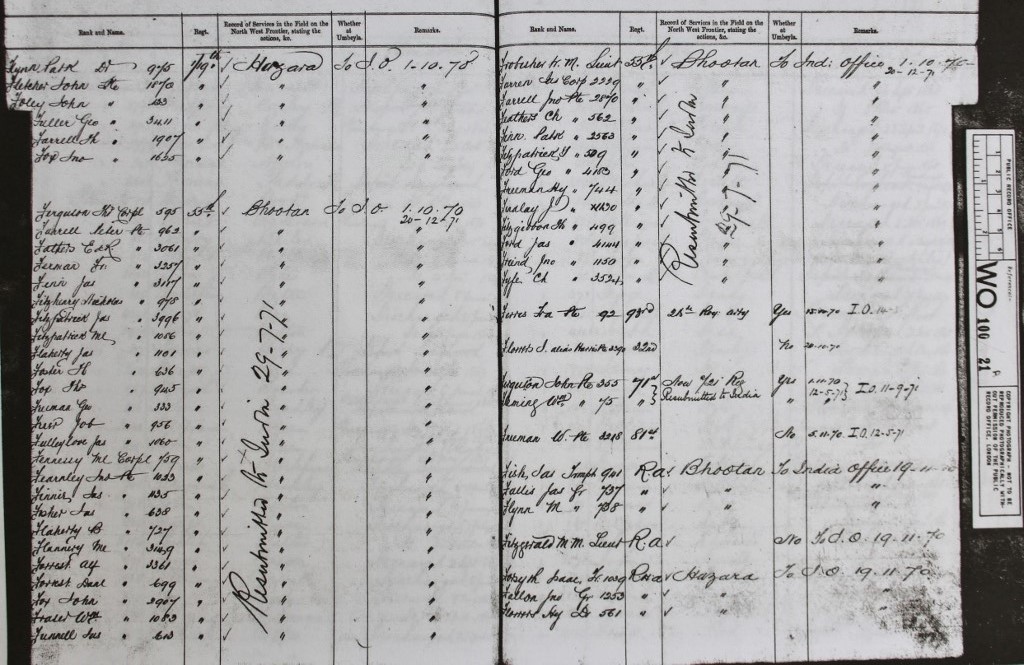 Rank and Name. Regt. Record of Services in the Field on the North West Frontier, stating the actions, &c. Whether at Umbeyla. Remarks.
Flynn Patk Dr 975 7/19th ✓ Hazara To I.O. 1-10-70
Fletcher John Pte 1870 " ✓ " "
Foley John " 233 " ✓ " "
Fuller Geo " 3411 " ✓ " "
Farrell Th " 1907 " ✓ " "
Fox Jno " 1625 " ✓ " "
Ferguson Corpl 595 55th ✓ Bhootan To I.O. 1.10.70
20-12-71
Farrell Peter Pte 962 " ✓ " "
Fathers Edk " 3061 " ✓ " "
Ferman " 3257 " ✓ " "
Fenn Jas " 3167 " ✓ " "
Fitzhenry Nicholas " 978 " ✓ " "
Fitzpatrick Jas " 3996 " ✓ " "
Fitzpatrick Ml " 1056 " ✓ " "
Flaherty Jas " 1101 " ✓ " "
Foster " 636 " ✓ " "
Fox Thos " 945 " ✓ " "
Freeman Geo " 333 " ✓ " "
Job " 956 " ✓ " "
Fulleylove Jas " 1060 " ✓ " "
Fennessy Ml Corpl 759 " ✓ " "
Fearnley Jno Pte 1123 " ✓ " "
Finnis Jas " 1135 " ✓ " "
Fisher Jas " 638 " ✓ " "
Flaherty " 727 " ✓ " "
Flannery Ml " 3149 " ✓ " "
Forrest Alf " 3361 " ✓ " "
Forrest Isaac " 699 " ✓ " "
Fox John " 2907 " ✓ " "
Frater Wm " 1083 " ✓ " "
Funnell Jas " 613 " ✓ " "
Resubmitted to India 29-7-71
Rank and Name. Regt. Record of Services in the Field on the North West Frontier, stating the actions, &c. Whether at Umbeyla. Remarks.
Frobisher W. M. Lieut 55th ✓ Bhootan To Indi: Office 1.10.70
20-12-71
Farren Jas Corp 2229 " ✓ "
Farrell Jno Pte 2870 " ✓ "
Feathers Ch " 562 " ✓ "
Finn Patk " 2563 " ✓ "
Fitzpatrick " 509 " ✓ "
Ford Geo " 4183 " ✓ "
Freeman Hy " 744 " ✓ "
Findlay J " 4430 " ✓ "
Fitzgibbon Th " 499 " ✓ "
Ford Jas " 4144 " ✓ "
Friend Jno " 1150 " ✓ "
Fyfe Ch " 3524 " ✓ "
Resubmitted to India
29-7-71
Pte 92 93rd Yes I.O.
alias 22nd No 20-10-70
Ferguson John Pte 355 71st Now Yes 1-11-70
Fleming Wm " 75 " Resubmitted to India " 12-5-71 I.O. 11-9-71
Freeman W. Pte 3218 81st No 5.11.70 I.O. 12-5-71
Fish, Jas Trmptr 941 R.a ✓ Bhootan To India Office 19-11-70
Fallis Jas Gr 737 " ✓ " "
Flynn M " 738 " ✓ " "
Fitzgerald M. M. Lieut R.a ✓ No To I.O. 19.11.70
Forsyth Isaac 1039 RHa ✓ Hazara To I.O. 19.11.70
Fallon Jno Gr 1253 " ✓ " "
Hy 561 " ✓ " "
PUBLIC RECORD OFFICE
Reference:-
WO 100 21
COPYRIGHT PHOTOGRAPH - NOT TO BE REPRODUCED PHOTOGRAPHICALLY WITHOUT PERMISSION OF THE PUBLIC RECORD OFFICE, LONDON